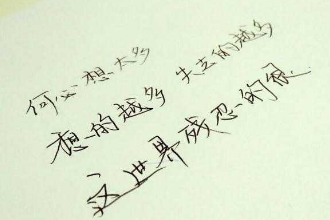 何必想太多
想的越多 失去的越多
这世界残忍的很